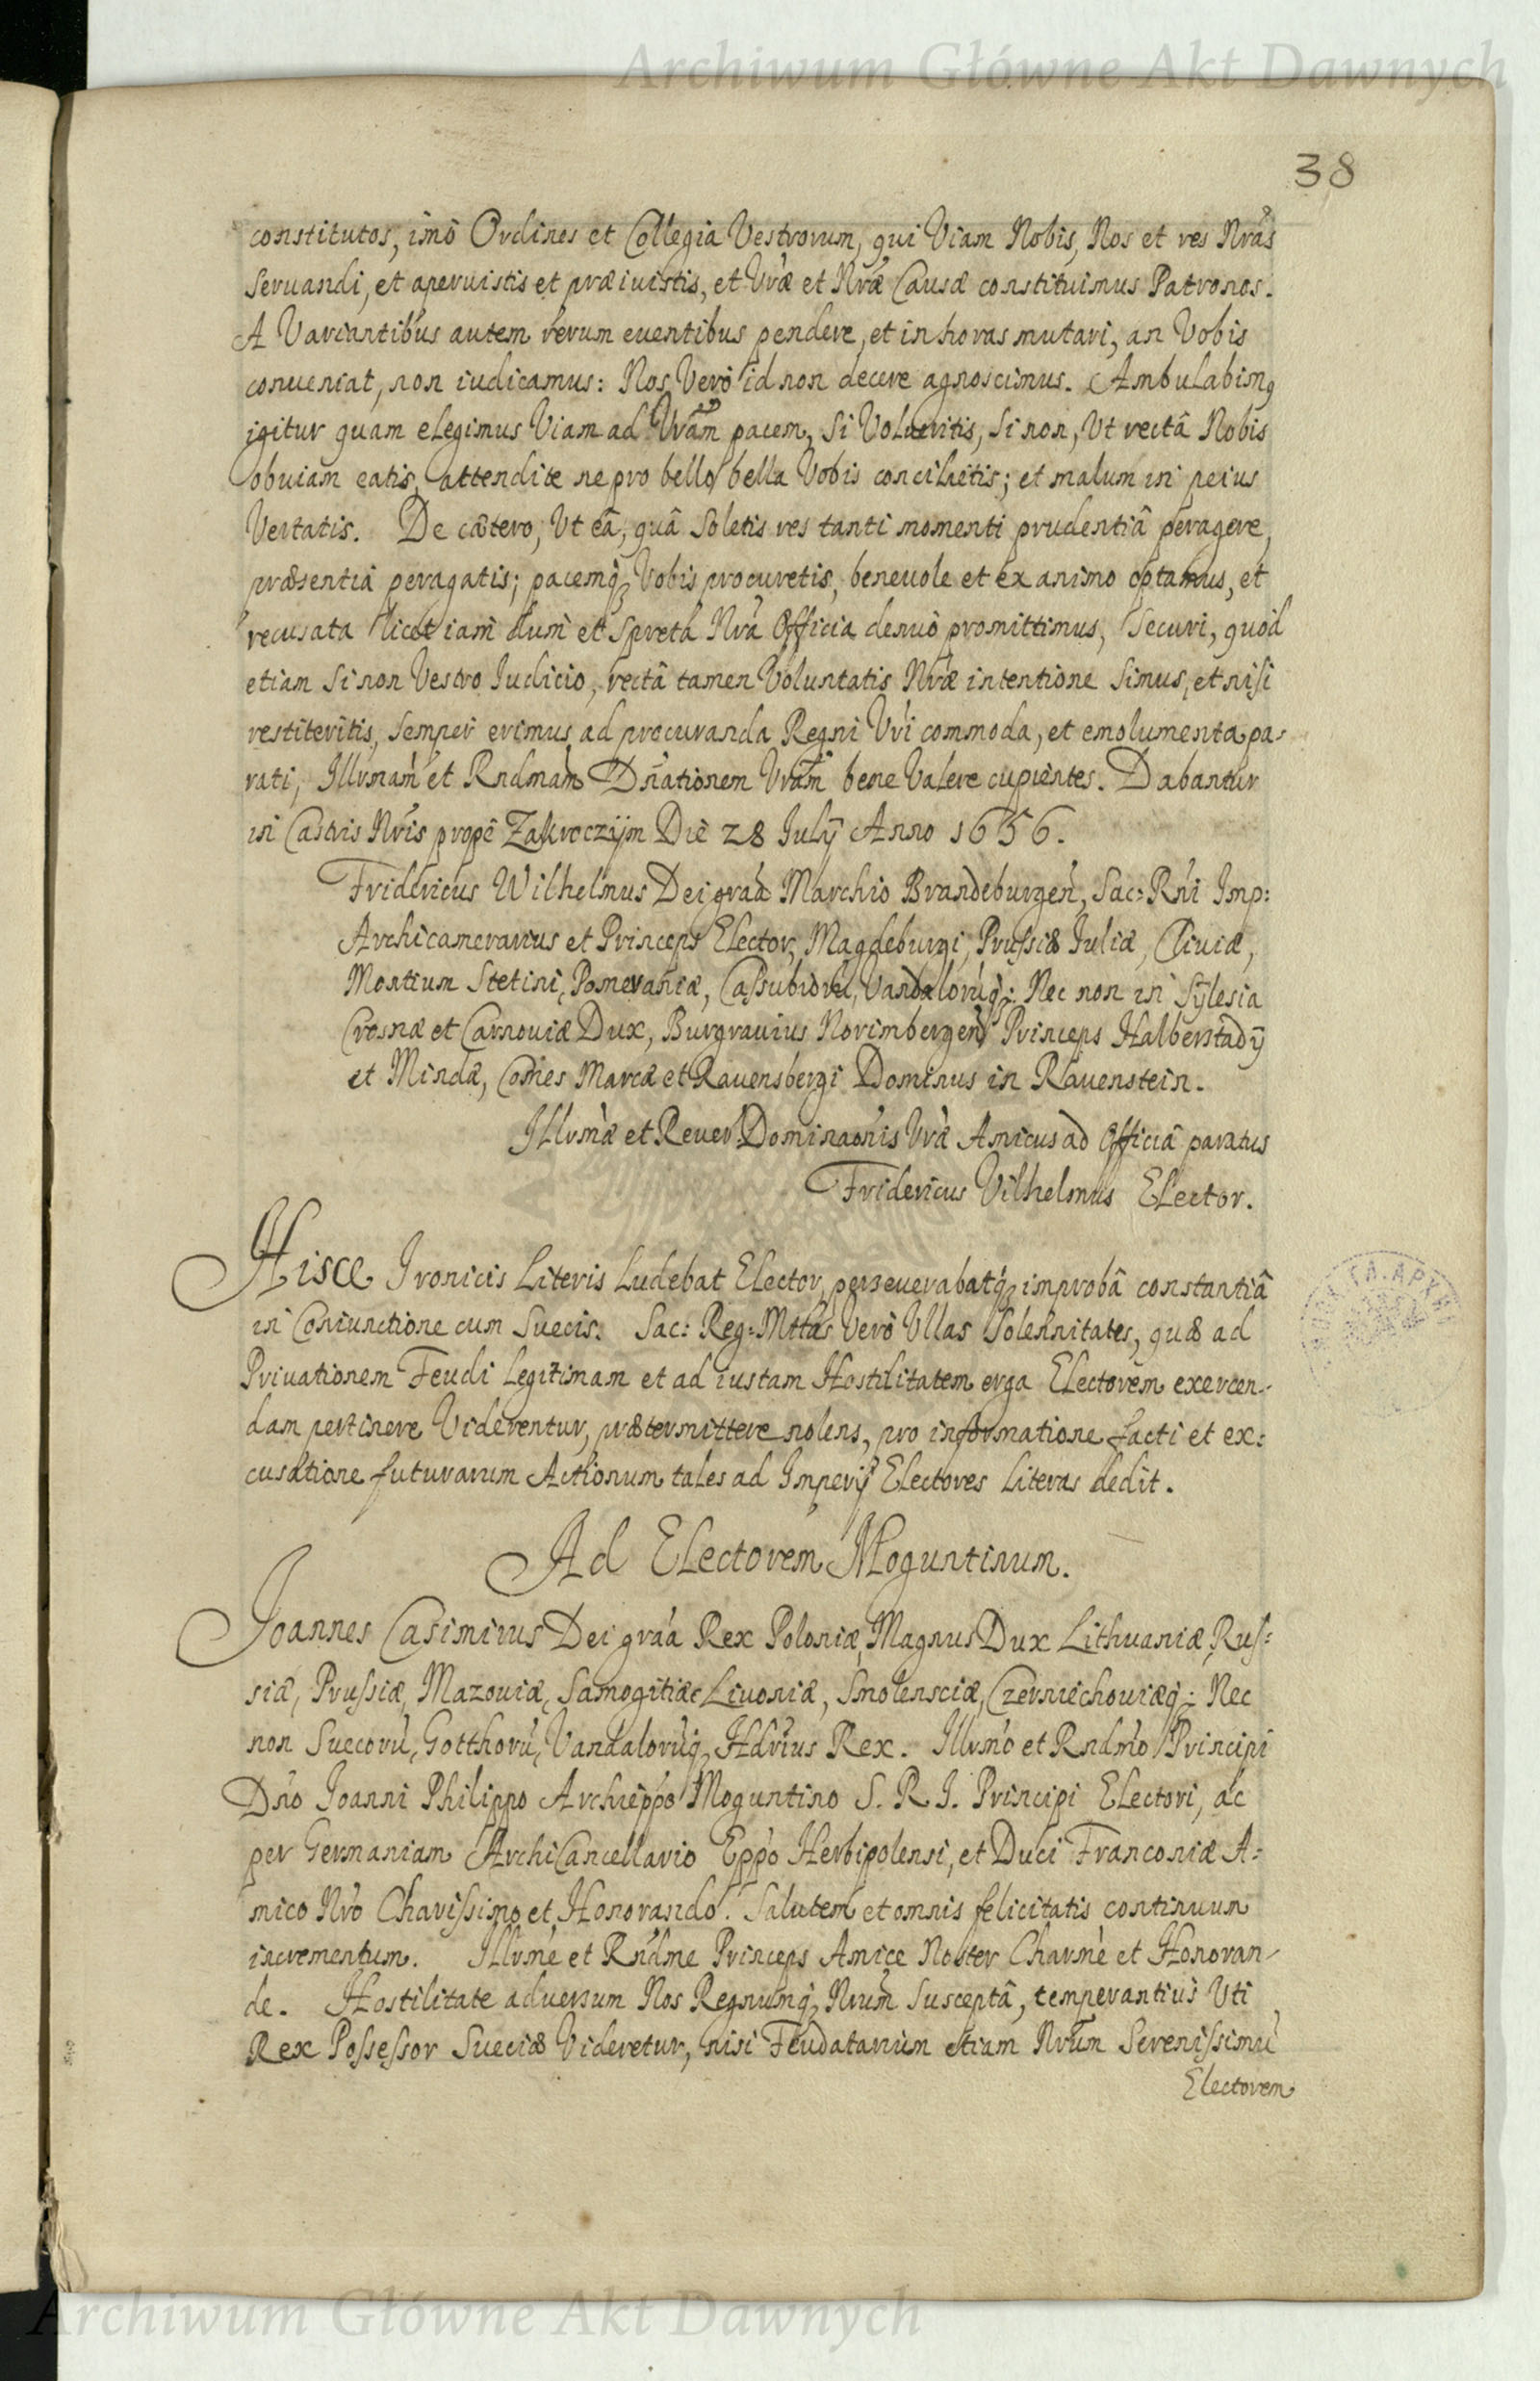 Archiwum Główne Akt Dawnych
38
constitutos, imò Ordines et Collegia Vestrorum, qui Viam Nobis, Nos et res Nrás
seruandi, et aperuistis et præiuistis, et Vræ et Nræ Causæ constituimus Patronos.
A Variantibus autem rerum euentibus pendere, et in horas mutari, an Vobis
conueniat, non iudicamus: Nos Verò id non decere agnoscimus. Ambulabimq
igitur quam elegimus Viam ad Vram pacem, Si Volueritis, Si non, Ut rectâ Nobis
obuiam eatis, attendite ne pro bello bella Vobis concilietis; et malum in peius
Vertatis. De cætero, Ut eâ, quâ Soletis res tanti momenti prudentiâ peragere,
præsentia peragatis; pacemq Vobis procuretis, beneuole et ex animo optamus, et
recusata licet iam dum et Spreta Nra Officia denuò promittimus, Securi, quòd
etiam Si non Vestro Iudicio, rectâ tamen Voluntatis Nræ intentione Simus, et nisi
restiteritis, Semper erimus ad procuranda Regni Vri commoda, et emolumenta pa-
rati, Illrmam et Rndmam Dnationem Vram bene Valere cupientes. Dabantur
in Castris Nris propè Zakroczijm Die 28 Iulÿ Anno 1656.
Fridericus Wilhelmus Dei graâ Marchio Brandeburgen, Sac: Rni Imp:
Archicamerarius et Princeps Elector, Magdeburgi, Prussiæ Iuliæ, Cliuiæ,
Montium Stetini, Pomeraniæ, Cassubiorū, Vandalorūq: Nec non in Sÿlesia
Crosnæ et Carnouiæ Dux, Burgrauius Norimbergen Princeps Halberstadÿ
et Mindæ, Comes Marcæ et Rauensbergi Dominus in Rauenstein.
Illrmæ et Reuer. Dominaonis Vræ Amicus ad Officiâ paratus
Fridericus Vilhelmus Elector.
Hisce Ironicis Literis Ludebat Elector, perseuerabatq improbâ constantiâ
in Coniunctione cum Suecis. Sac: Reg: Mttas Verò Ullas Solennitates, quæ ad
Priuationem Feudi Legitimam et ad iustam Hostilitatem erga Electorem exercen-
dam pertinere Viderentur, prætermittere nolens, pro informatione facti et ex:
cusatione futurarum Actionum tales ad Imperÿ Electores Literas dedit.
Ad Electorem Moguntinum.
Joannes Casimirus Dei graâ Rex Poloniæ, Magnus Dux Lithuaniæ, Rus:
siæ, Prussiæ, Mazouiæ, Samogitiæ Liuoniæ, Smolensciæ, Czerniechouiæq: Nec
non Suecorū, Gotthorū, Vandalorūq Hdrius Rex. Illrmo et Rndmo Principi
Dno Joanni Philippo Archieppo Moguntino S. R. I. Principi Electori, ac
per Germaniam ArchiCancellario Eppo Herbipolensi, et Duci Franconiæ A:
mico Nro Charissimo et Honorando. Salutem et omnis felicitatis continuum
incrementum. Illrme et Rndme Princeps Amice Noster Charme et Honoran-
de. Hostilitate aduersum Nos Regnumq Nrum Susceptâ, temperantius Uti
Rex Possessor Sueciæ Videretur, nisi Feudatarium etiam Nrum Serenissimū
Electorem
Archiwum Główne Akt Dawnych